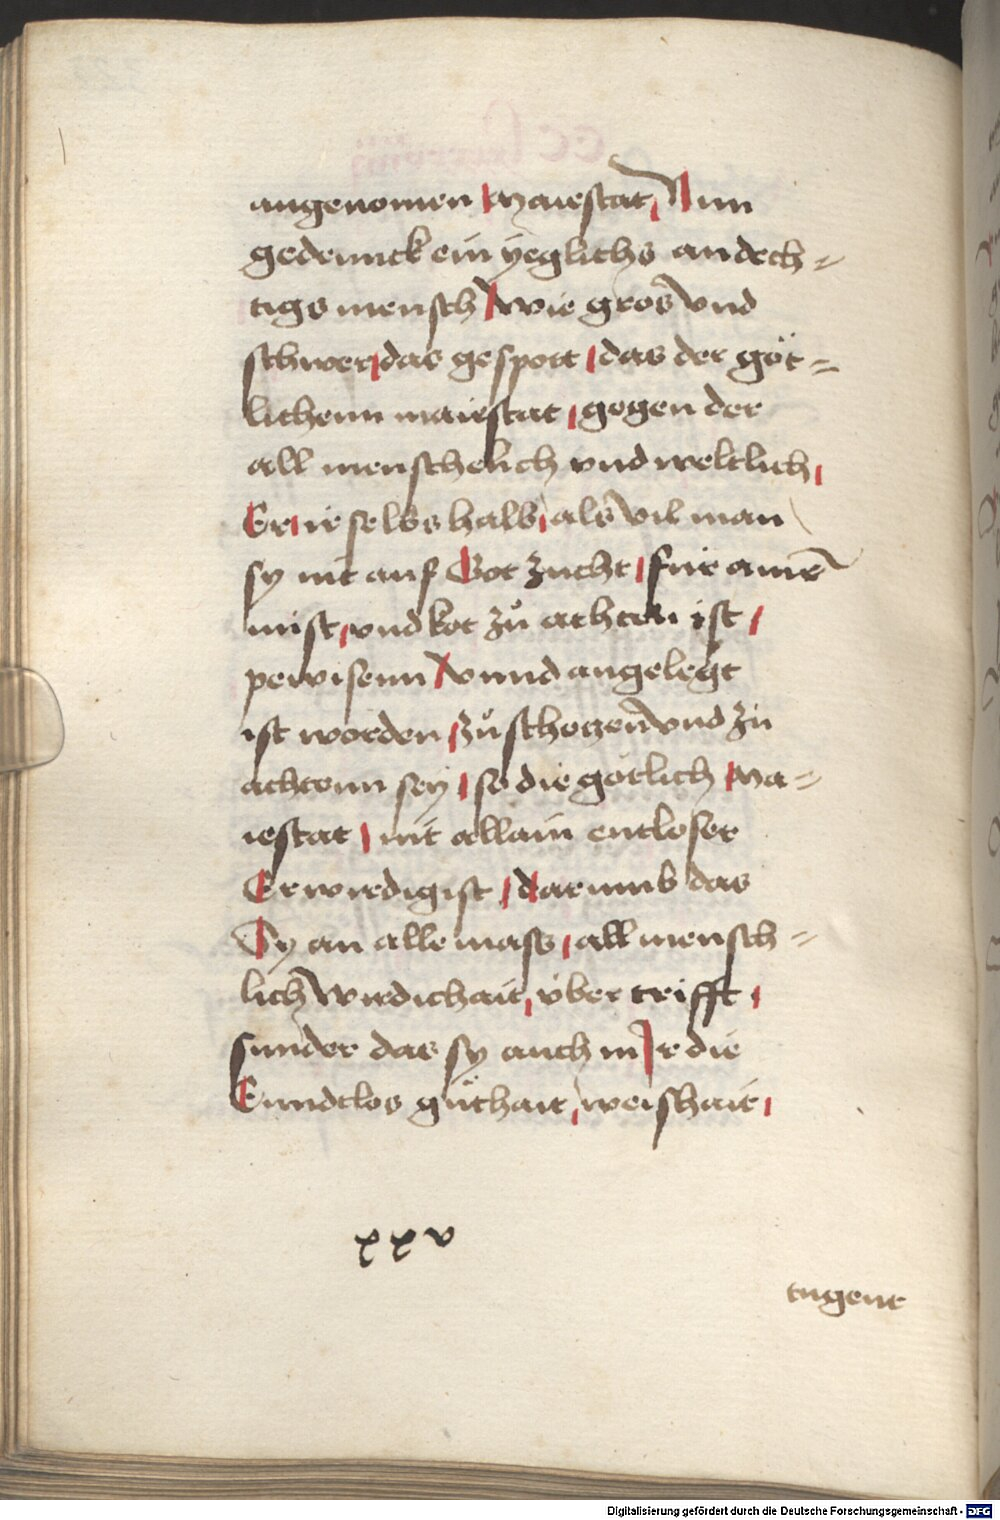 angenomen Maiestat, Nun
gedennck ein yeglichs andech=
tigs mensch wie gros vnd
schwer, das gespott, das der göt=
lichenn maiestat, gegen der
all menschelich vnd weltlich,
Er, ir selbs halb, als vil man
sy nit auf Got zucht, für ainē
mist, vnd kot zů achten ist,
pewisenn vnnd angelegt
ist worden, zů schetzen vnd zu
achtenn sey, so die götlich Ma=
iestat, nit allain entloser
Erwirdig ist, darumb das
Sy an alle mass, all mensch=
lich wirdichait, über trifft,
sunder das sy auch in Ir die
Enndtlos güthait, weishait,
xxv
tugent
Digitalisierung gefördert durch die Deutsche Forschungsgemeinschaft - DFG